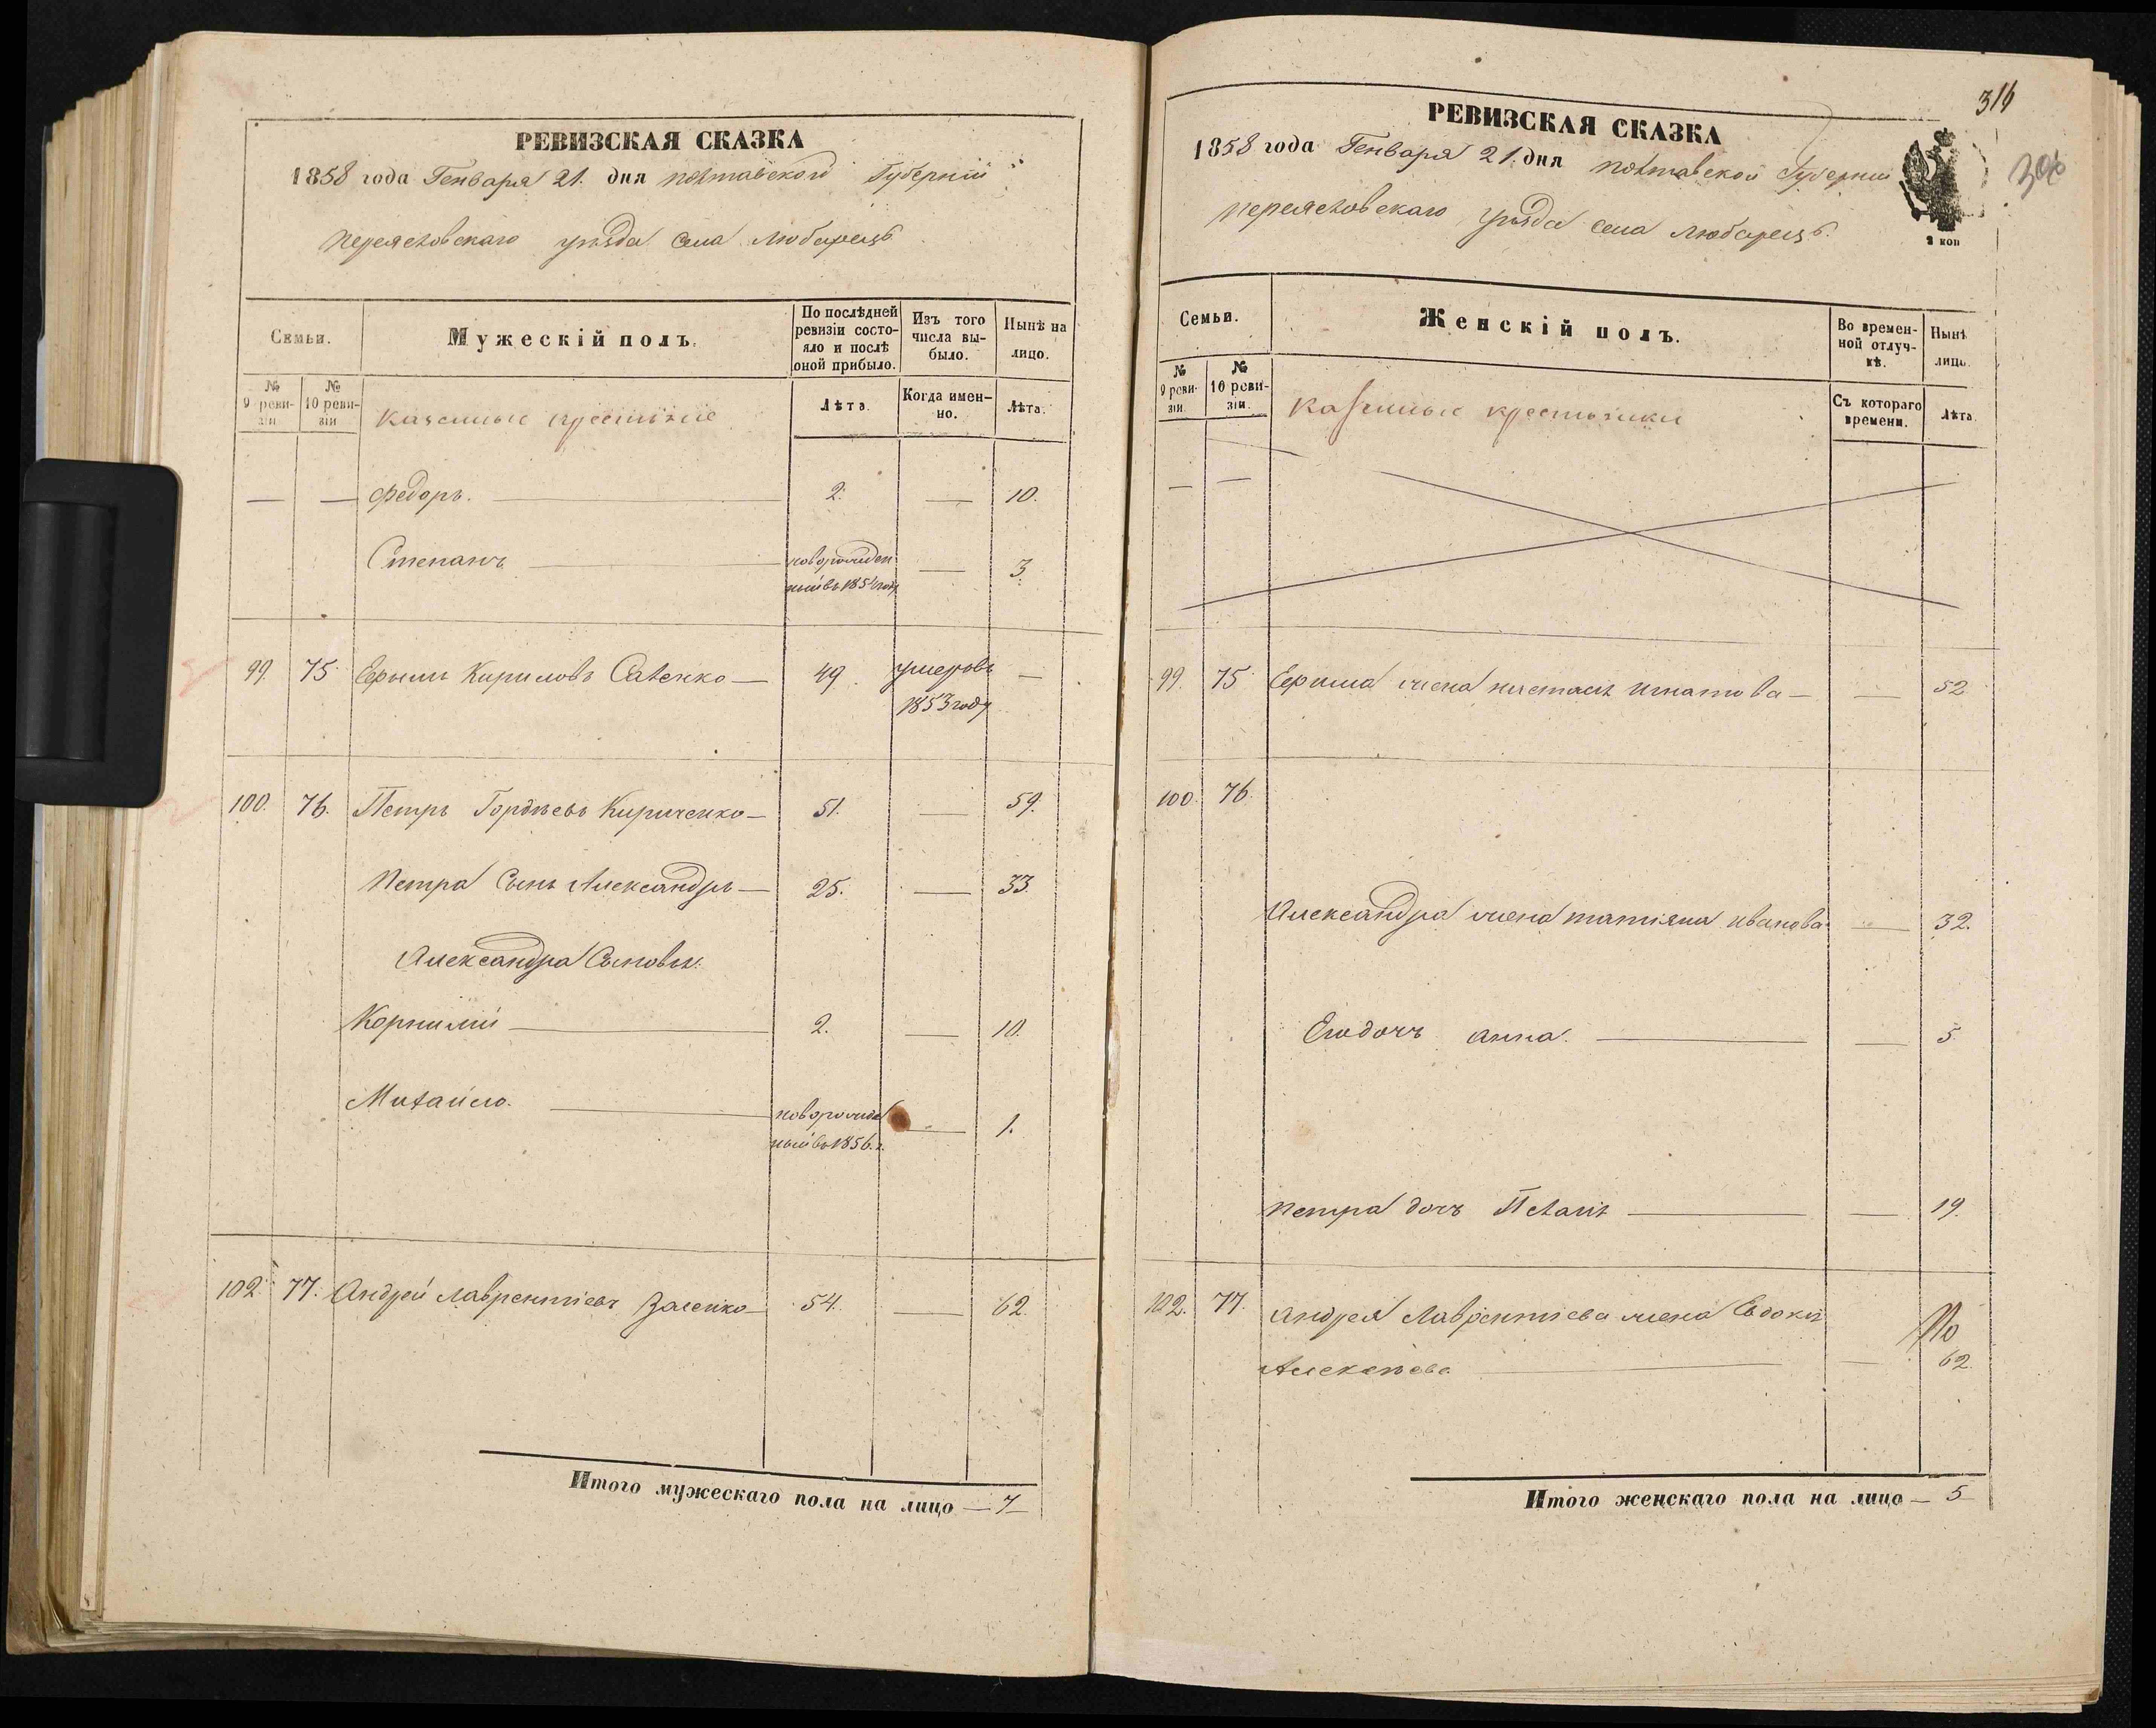 РЕВИЗСКАЯ СКАЗКА
1858 года Генваря 21. дня Полтавской Губерніи
Переяславскаго уѣзда села Любарецъ
Семьи.
Мужескій полъ.
По послѣдней ревизіи состояло и послѣ оной прибыло.
Изъ того числа выбыло.
Нынѣ на лицо.
№ 9 ревизіи
№ 10 ревизіи
Казенные крестьяне
Лѣта.
Когда именно.
Лѣта.
— — Федоръ. — 2. — 10.
Степанъ — новорожден
ный въ 1854 году — 3.
99. 75. Ефимъ Кириловъ — 49. умеръ въ —
1853 году
100. 76. Петръ Гордѣевъ Кириченко — 51. — 59.
Петра Сынъ Александръ — 25. — 33.
Александра Сыновья:
Корнилій — 2. — 10.
Михайло. — новорожден
ный въ 1856. г. — 1.
102. 77. Андрей Лаврентіевъ — 54. — 62.
Итого мужескаго пола на лицо — 7
РЕВИЗСКАЯ СКАЗКА
316
1858 года Генваря 21. дня Полтавской Губерніи
Переяславскаго уѣзда села Любарецъ.
2 коп
Семьи.
Женскій полъ.
Во временной отлучкѣ.
Нынѣ лицо.
№ 9 ревизіи.
№ 10 ревизіи.
Казенные крестьянки
Съ котораго времени.
Лѣта.
— —
99. 75. Ефима жена Настасія Игнатова — — 52.
100. 76.
Александра жена Татіяна Иванова — 32.
Его дочь Анна. — — 5.
Петра дочь Пелагія — — 19.
102. 77. Андрея Лаврентіева жена Евдокія
Алексѣева — — 62.
Итого женскаго пола на лицо — 5